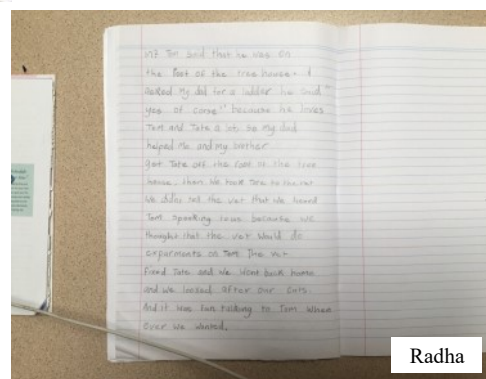 Tom said that he was on
the roof of the tree house. I
asked my dad for a ladder he said "
yes of corse" because he loves
Tom and Tate a lot. so my dad
helped me and my brother
get Tate off the roof of the tree
house. then we took Tate to the vet
We didn't tell the vet that we heard
Tom speaking because we
thought that the vet would do
expurments on Tom The vet
fixed Tate and we went back home
and we looked after our cats.
And it was fun talking to Tom when
over we wanted.
Radha